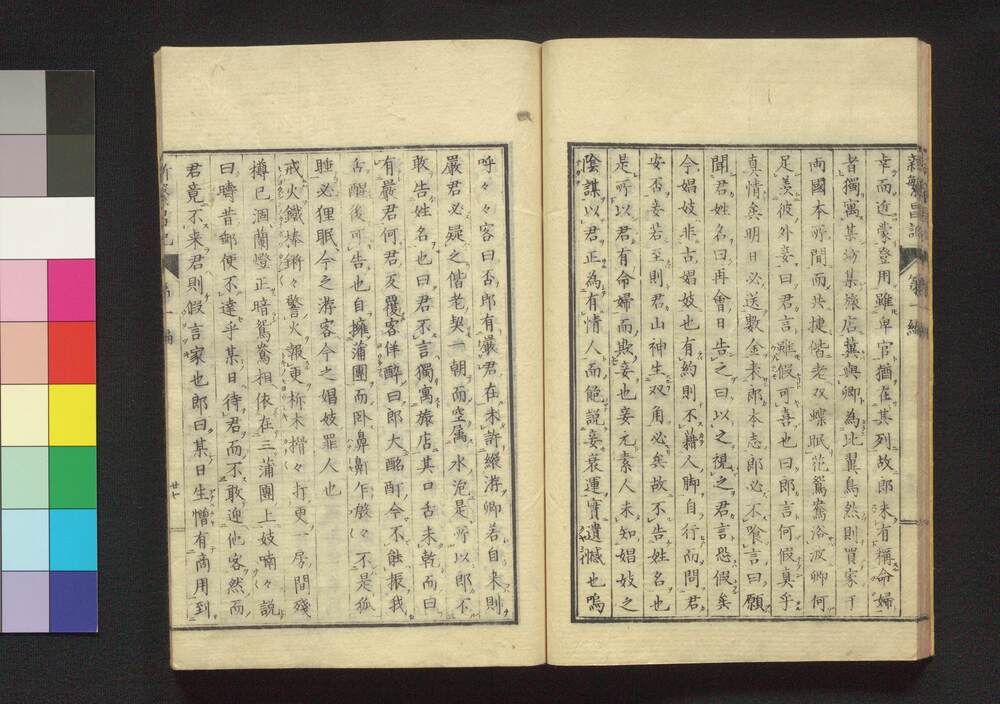 幸而近蒙登用雖卑官猶在其列故郎未有稱命婦
者獨寓某坊某旅店冀與卿為比翼鳥然則買家于
両國本所間而共捷偕老双蝶眠花鴛鴦浴波卿何
足羨彼外妾曰君言雖假可喜也曰郎言何假真乎
真情矣明日必送數金来郎本志郎必不喰言曰願
聞君姓名曰再會日告之曰以之視之君言恐假矣
今娼妓非古娼妓也有約則不藉人脚自行而問君
安否妾若至則君山神生双角必矣故不告姓名也
是所以君有命婦而欺妾也妾元素人未知娼妓之
陰謀以君正為有情人而飽説妾衰運實遺憾也嗚
呼々々客曰否郎有嚴君在未許縱游卿若自来則
嚴君必疑之偕老契一朝而空属水泡是所以郎不
敢告姓名也曰君不言獨寓旅店其口舌未乾而曰
有嚴君何君反覆客佯酔曰郎大酩酊今不能振我
舌醒後可告也自擁蒲團而臥鼻鼾乍發々不是狐
睡必狸眠今之游客今之娼妓罪人也
戒火鐵棒鏘々警火報更柝木摺々打更一房間殘
樽已涸蘭燈正暗鴛鴦相依在三蒲團上妓喃々説
曰疇昔郵便不達乎某日待君而不敢迎他客然而
君竟不来君則假言家也郎曰某日生憎有商用到
廿七